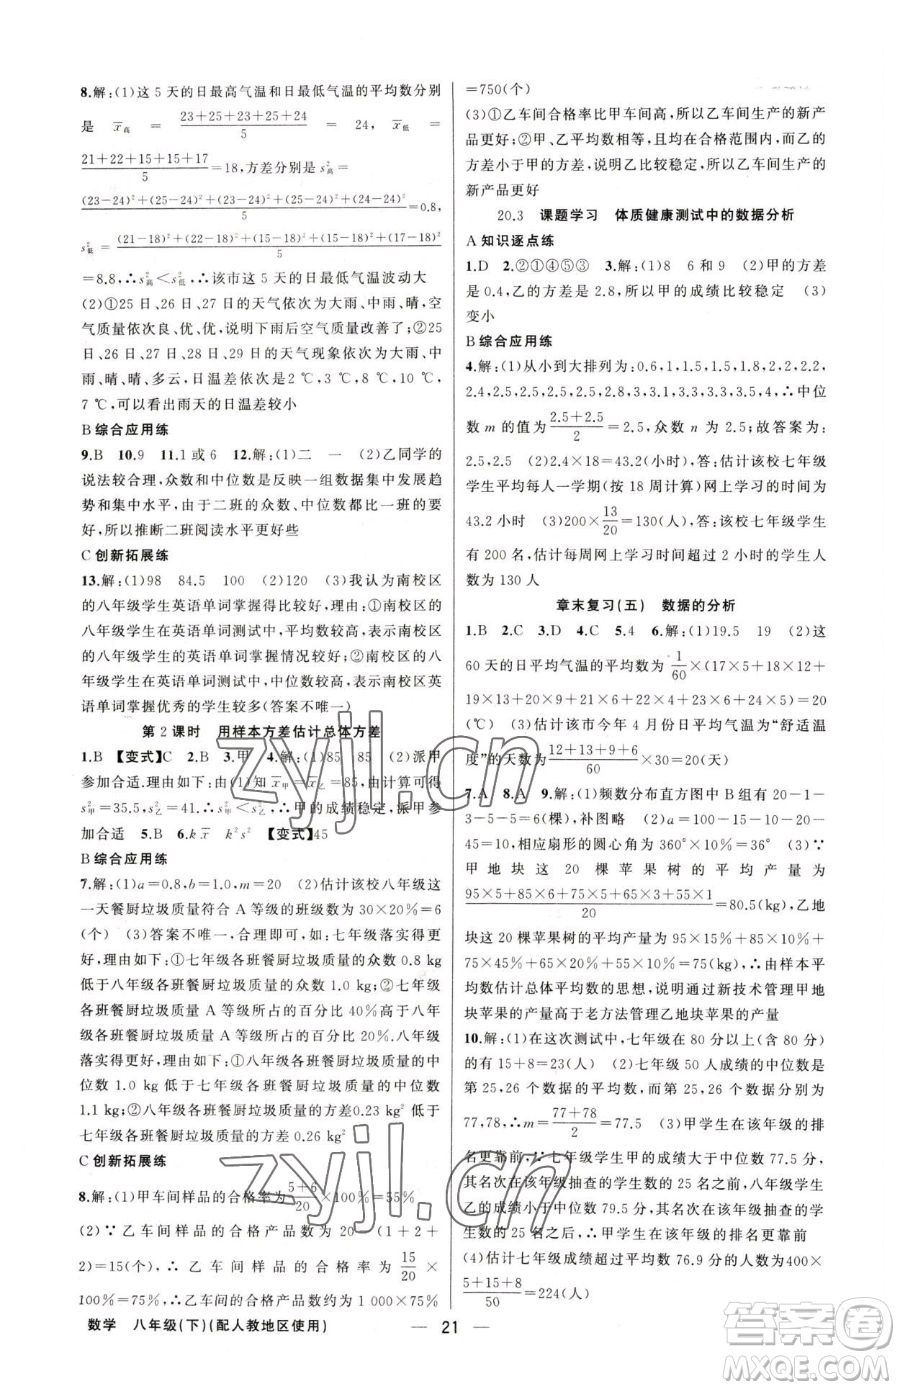 8.解:(1)这5天的日最高气温和日最低气温的平均数分别
是 x̄高 = (23+25+23+25+24)/5 = 24, x̄低 =
(21+22+15+15+17)/5=18,方差分别是 s²高=
((23-24)²+(25-24)²+(23-24)²+(25-24)²+(24-24)²)/5=0.8,
s²低=((21-18)²+(22-18)²+(15-18)²+(15-18)²+(17-18)²)/5
=8.8,∴s²高<s²低,∴该市这5天的日最低气温波动大
(2)①25日、26日、27日的天气依次为大雨、中雨、晴,空
气质量依次良、优、优,说明下雨后空气质量改善了;②25
日、26日、27日、28日的天气现象依次为大雨、中
雨、晴、晴、多云,日温差依次是2℃,3℃,8℃,10℃,
7℃,可以看出雨天的日温差较小
B 综合应用练
9.B 10.9 11.1或6 12.解:(1)二 一 (2)乙同学的
说法较合理,众数和中位数是反映一组数据集中发展趋
势和集中水平,由于二班的众数、中位数都比一班的高,
所以推断二班阅读水平更好些
C 创新拓展练
13.解:(1)98 84.5 100 (2)120 (3)我认为南校区
的八年级学生英语单词掌握得比较好,理由:①南校区的
八年级学生在英语单词测试中,平均数较高,表示南校区
学生的英语单词掌握情况较好;②南校区的八年级学生
在英语单词测试中,中位数较高,表示南校区英语
单词掌握优秀的学生较多(答案不唯一)
第2课时 用样本方差估计总体方差
1.B 【变式】C 2.B 3.甲 4.解:(1)85 85 (2)派甲
参加合适.理由如下:由(1)知 x̄甲=x̄乙=85,由计算可得
s²甲=35.5,s²乙=41.∴s²甲<s²乙,∴甲的成绩稳定,派甲参
加合适 5.B 6.kx̄ k²s² 【变式】45
B 综合应用练
7.解:(1)a=0.8,b=1.0,m=20 (2)估计该校八年级这
一天餐厨垃圾质量符合A等级的班级数为30×20%=6
(个) (3)答案不唯一,合理即可,如:七年级落实得更
好,理由如下:①七年级各班餐厨垃圾质量的众数0.8 kg
低于八年级各班餐厨垃圾质量的众数1.0 kg;②七年级
各班餐厨垃圾质量A等级所占的百分比40%高于八年
级各班餐厨垃圾质量A等级所占的百分比20%.八年级
落实得更好,理由如下:①八年级各班餐厨垃圾质量的中
位数1.0 kg低于七年级各班餐厨垃圾质量的中位数
1.1 kg;②八年级各班餐厨垃圾质量的方差0.23 kg²低于
七年级各班餐厨垃圾质量的方差0.26 kg²
C 创新拓展练
8.解:(1)甲车间样品的合格率为(5+6)/20×100%=55%
(2)∵乙车间样品的合格产品数为20-(1+2+
2)=15(个),∴乙车间样品的合格率为15/20×
100%=75%,∴乙车间的合格产品数约为1 000×75%
数学 八年级(下)(配人教地区使用)
=750(个)
(3)①乙车间合格率比甲车间高,所以乙车间生产的新产
品更好;②甲、乙平均数相等,且均在合格范围内,而乙的
方差小于甲的方差,说明乙比较稳定,所以乙车间生产的
新产品更好
20.3 课题学习 体质健康测试中的数据分析
A 知识逐点练
1.D 2.②①④⑤③ 3.解:(1)8 6和9 (2)甲的方差
是0.4,乙的方差是2.8,所以甲的成绩比较稳定 (3)
变小
B 综合应用练
4.解:(1)从小到大排列为:0.6,1,1.5,1.5,1.8,2,2,2.2,
2.4,2.5,2.5,2.5,2.5,2.8,3.1,3.3,3.3,3.5,4,∴中位
数m的值为(2.5+2.5)/2=2.5,众数n为2.5;故答案为:
2.5,2.5 (2)2.4×18=43.2(小时),答:估计该校七年级
学生平均每人一学期(按18周计算)网上学习的时间为
43.2小时 (3)200×13/20=130(人),答:该校七年级学生
有200名,估计每周网上学习时间超过2小时的学生人
数为130人
章末复习(五) 数据的分析
1.B 2.C 3.D 4.C 5.4 6.解:(1)19.5 19 (2)这
60天的日平均气温的平均数为1/60×(17×5+18×12+
19×13+20×9+21×6+22×4+23×6+24×5)=20
(℃) (3)估计该市今年4月份日平均气温为“舒适温
度”的天数为(12+13+9+6)/60×30=20(天)
7.A 8.A 9.解:(1)频数分布直方图中B组有20-1-
3-5-5=6(棵),补图略 (2)a=100-15-10-20-
45=10,相应扇形的圆心角为360°×10%=36° (3)∵
甲地块这20棵苹果树的平均产量为
(95×5+85×6+75×5+65×3+55×1)/20=80.5(kg),乙地
块这20棵苹果树的平均产量为95×15%+85×10%+
75×45%+65×20%+55×10%=75(kg),∴由样本平
均数估计总体平均数的思想,说明新技术管理甲地
块苹果的产量高于老方法管理乙地块苹果的产量
10.解:(1)在这次测试中,七年级在80分以上(含80分)
的有15+8=23(人) (2)七年级50人成绩的中位数是
第25,26个数据的平均数,而第25,26个数据分别为
77,78,∴m=(77+78)/2=77.5 (3)甲学生在该年级的排
名更靠前,∵七年级学生甲的成绩大于中位数77.5分,
其名次在该年级抽查的学生数的25名之前,八年级学生
乙的成绩小于中位数79.5分,其名次在该年级抽查的学
生数的25名之后,∴甲学生在该年级的排名更靠前
(4)估计七年级成绩超过平均数76.9分的人数为400×
(5+15+8)/50=224(人)
— 21 —
zyjl.cn
zyjl.cn
答案圈
MXQE.COM